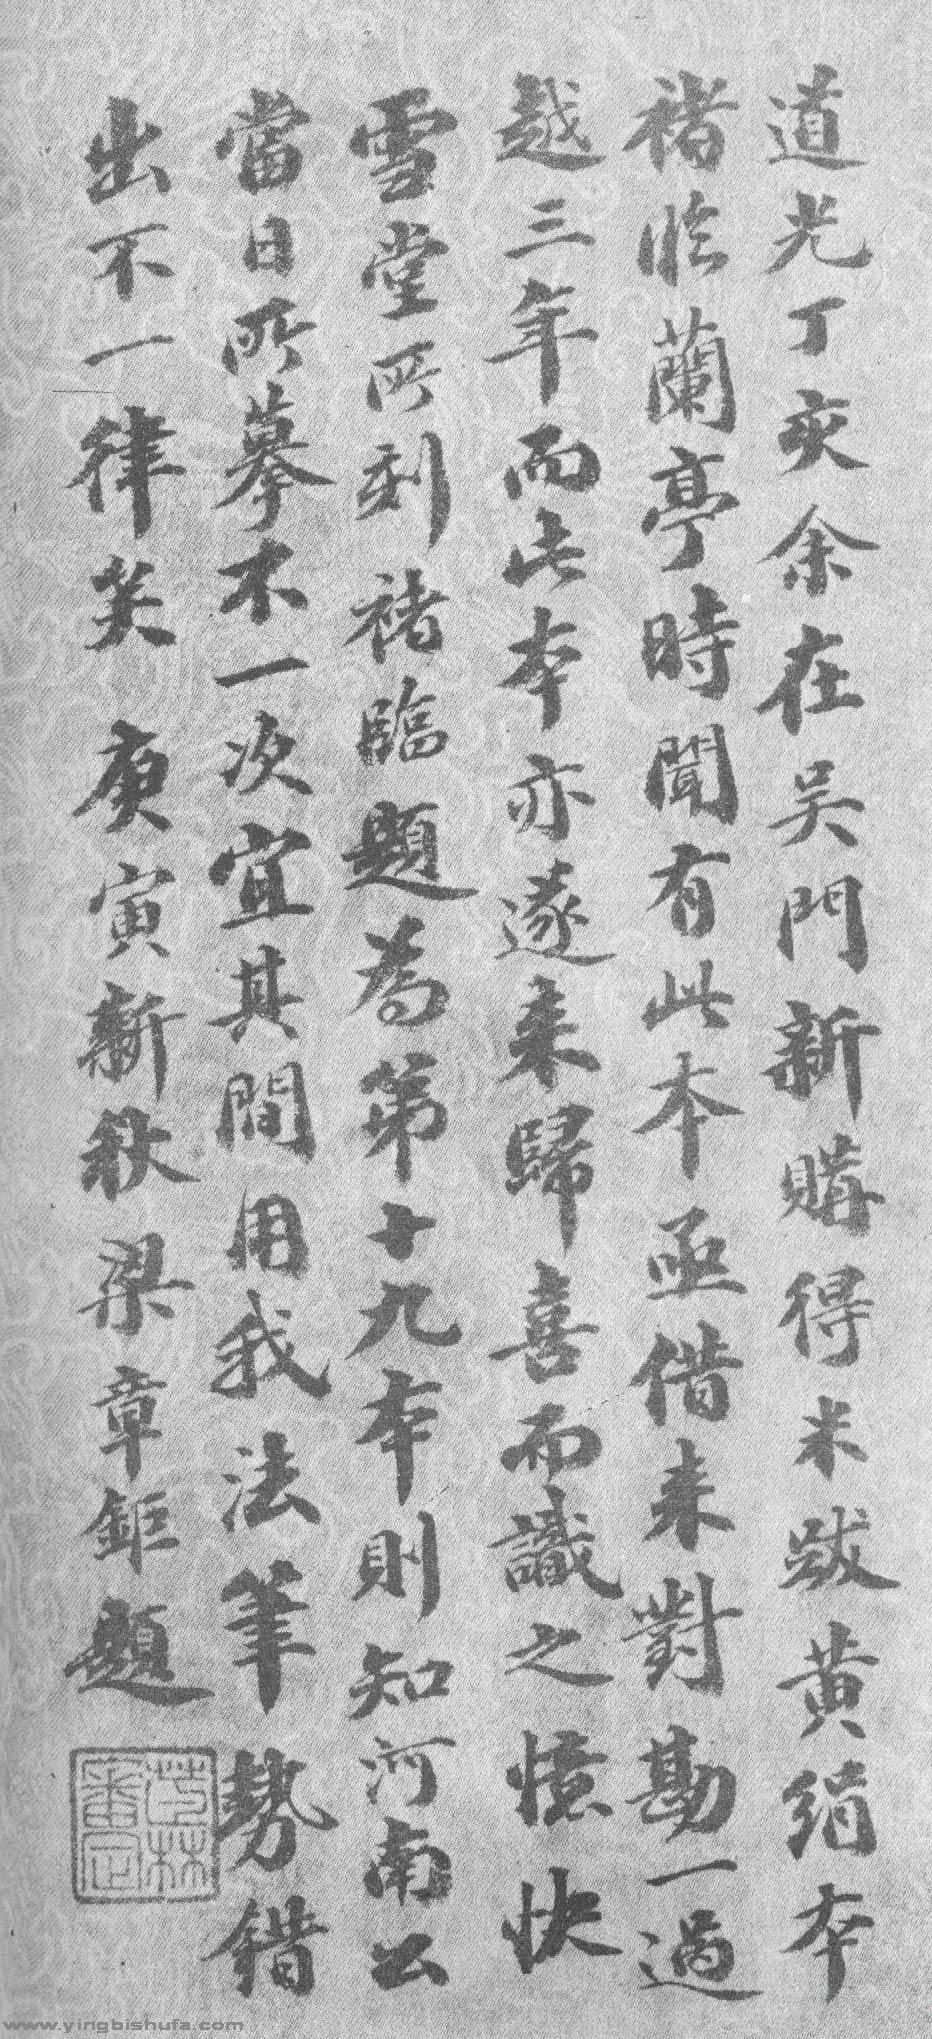 道光丁亥余在吴門新購得米跋黄絹本
褚临蘭亭時聞有此本亟借来對勘一過
越三年而此本亦遂来歸喜而識之憶快
雪堂所刻褚臨題為第十九本則知河南公
當日所摹不一次宜其間用我法筆勢錯
出不一律矣庚寅新秋梁章鉅題
茞林審定
www.yingbishufa.com